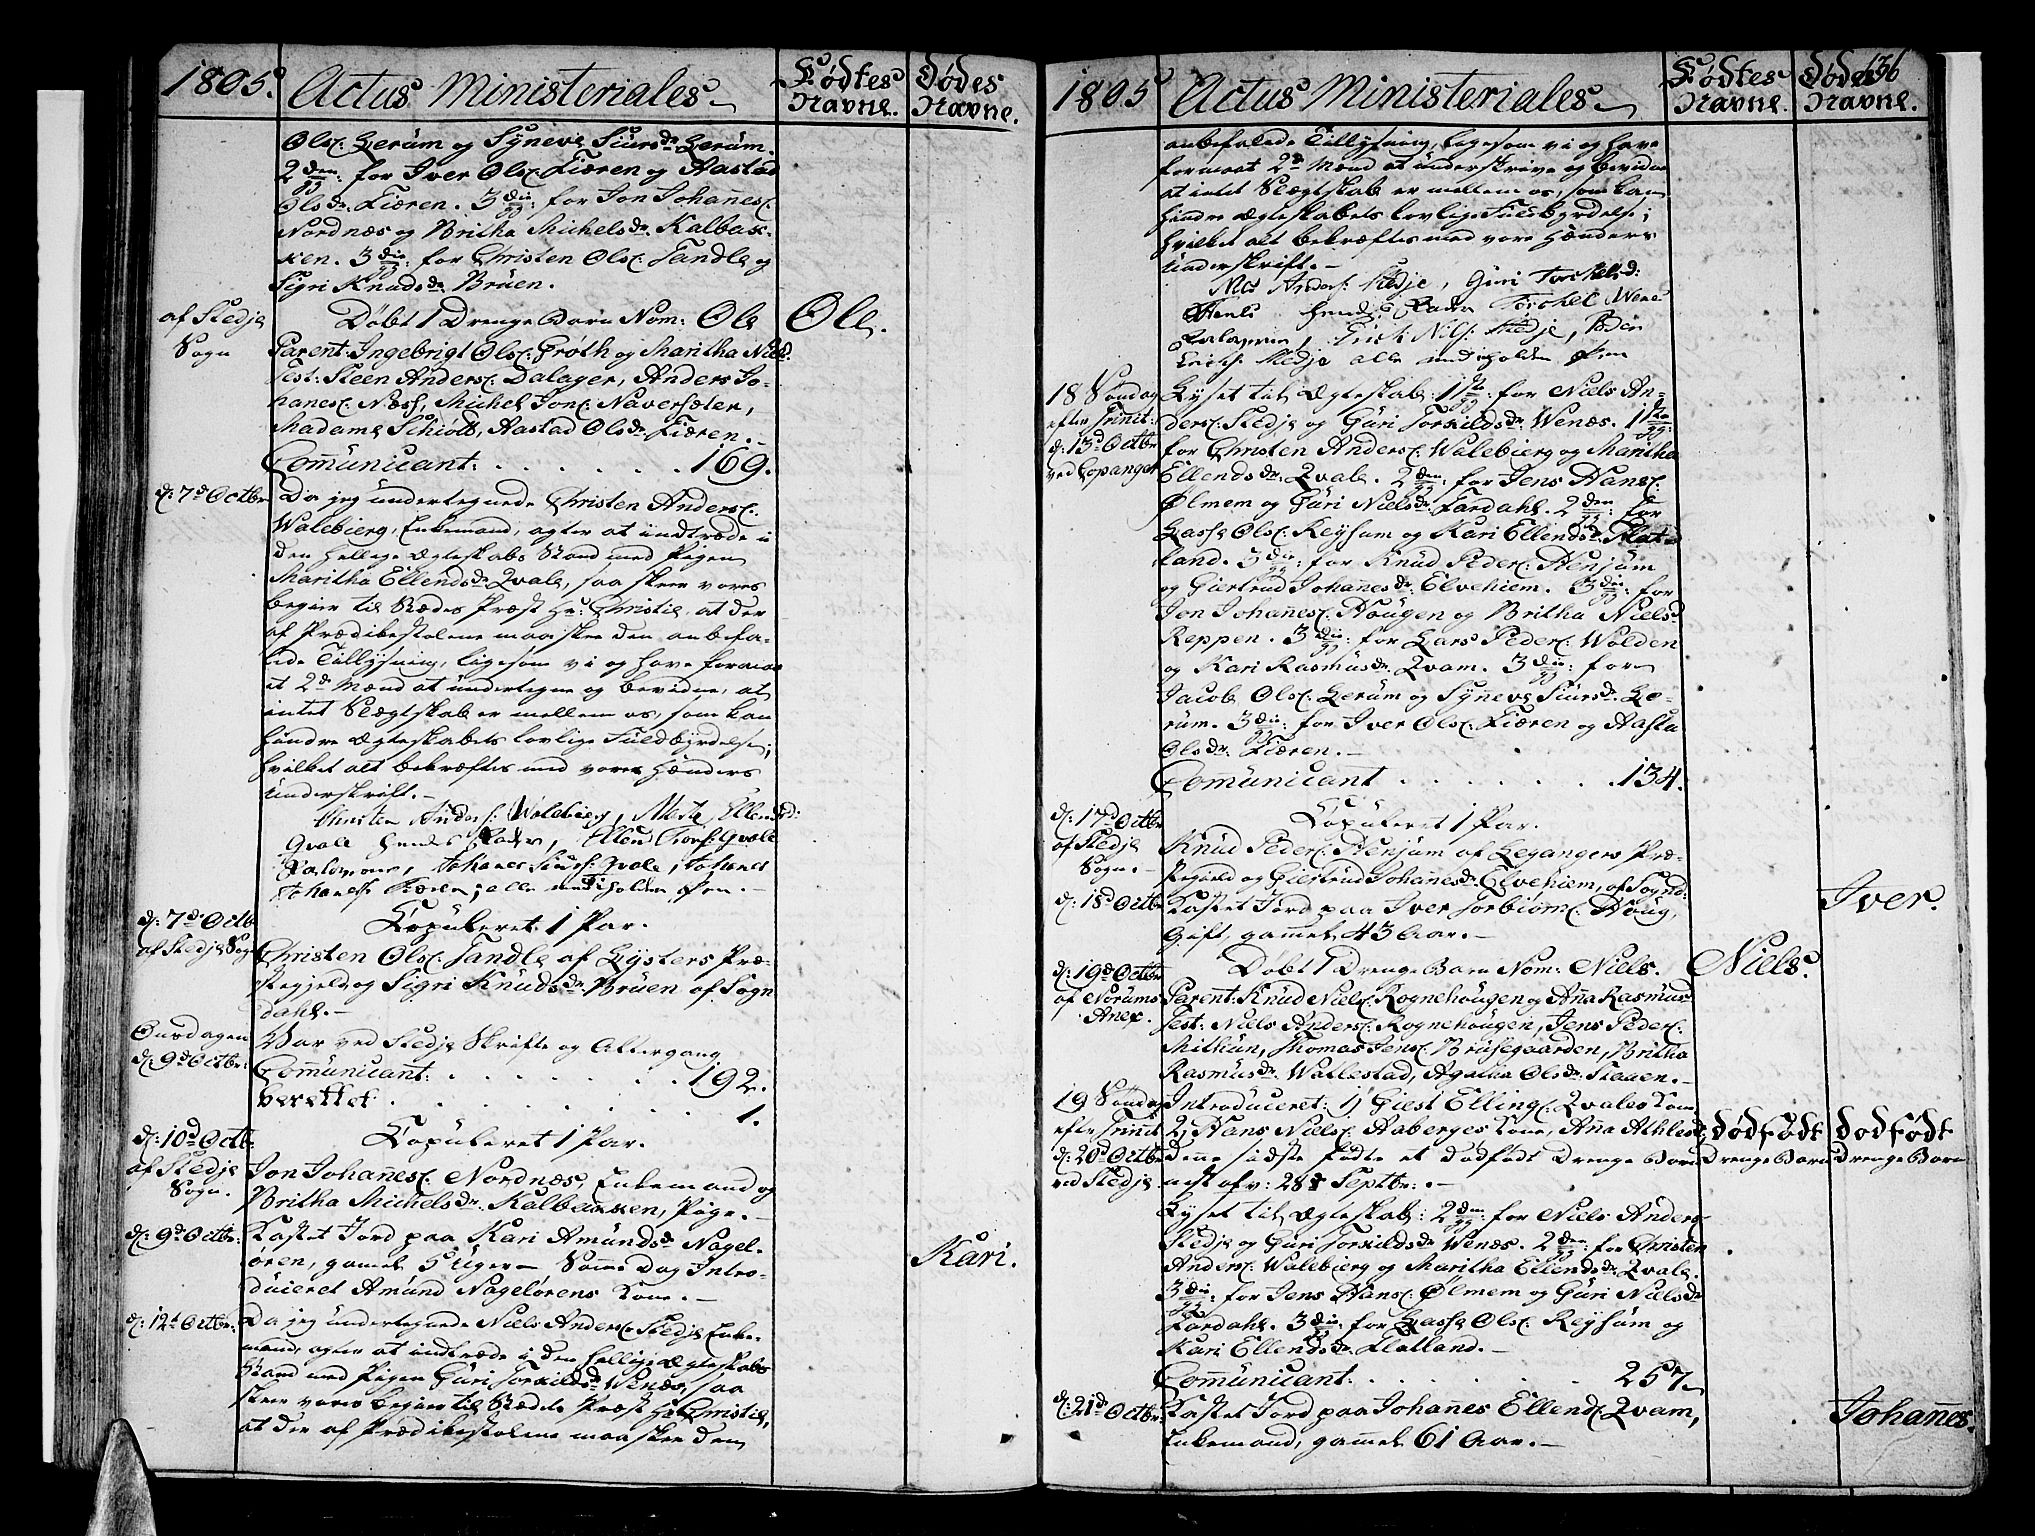 1805.
Actus Ministeriales
Fødtes Navne.
Dødes Navne.
Ols: Lerüm og Syneve Siurs dr Lerüm.
2 den: for Iver Ols: Fiæren og Aastad
Ols dr Fiæren. 3 die: for Jon Johañes:
Nordnæs og Britha Michels dr Kalbax-
ken. 3 die: for Christen Ols: Sandle og
Sigri Knuds dr Brüen.
af Stedje Sogn
Døbt 1 Drenge Barn Nom: Ole
Ole.
Parent: Ingebrigt Ols: Grøth og Maritha Niels d.
Test: Steen Anders: Dalager, Anders Jo-
hanes: Næss, Michel Jons: Naversæter,
Madame Schiøtt, Aastad Ols dr Fiæren.
Com̃ünicant: . . . . . . 169.
d: 7d Octbr
Da jeg ündertegnede Christen Anders:
Walebierg, Enkemand, agter at indtræde i
den hellige Ægteskabs Stand med Pigen
Maritha Ellends dr Qvale, saa skeer vores
begier til Stedes Præst Hr: Christie, at der
af Prædikestolene maa skee den anbefa-
lede Tillysning, ligesom vi og have formaa
et 2de Mænd at ündertegne og bevidne, at
intet Slægtskab er mellem os, som kan
hindre Ægteskabets lovlige Fuldbyrdelse;
hvilket alt bekræftes med vores Hænders
Underskrift.
Christen Anders: Walebierg, Mete Ellendsd:
Qvale hendes Fader, Ellend Tors: Qvale
Forlovere, Johanes Siurs: Qvale, Johanes
Johanes: Fiæren; alle med iholden Pen.
d: 7d Octb
af Stedje Sogn
Copüleret 1 Par.
Christen Ols: Sandle af Lysters Præ-
stegjeld og Sigri Knüds dr Brüen af Sogn
dahl.
Onsdagen
d: 9d Octbr:
Var ved Stedje Skrifte og Altergang
Com̃ünicant: . . . . . . 192.
Berettet . . . . . . 1.
d: 10d Octb
af Stedje Sogn.
Copüleret 1 Par.
Jon Johañes: Nordnæs, Enkemand og
Britha Michels dr Kalbaxken, Pige.
d: 9d Octbr:
Kastet Jord paa Kari Amünds dr Nagel-
Kari.
øren, gamel 5 Uger. Samme Dag Intro-
düceret Amünd Nagelørens Kone.
d: 12d Octbr:
Da jeg ündertegnede Niels Anders: Stedje Enke-
mand, agter at indtræde i den hellige Ægteskabs
Stand med Pigen Güri Torkilds dr Wenæs, saa
skeer vores begier til Stedets Præst Hr Christie,
at der af Prædikestolene maa skee den
1805
Actus Ministeriales
Fødtes Navne.
Dødes Navne.
136
anbefalede Tillysning, ligesom vi og have
formaaet 2de Mænd at ünderskrive og bevidne
at intet Slægtskab er mellem os, som kan
hindre Ægteskabets lovlige Fuldbyrdelse;
hvilket alt bekræftes med vore Hænders
Underskrift.
Niels Anders: Stedje, Güri Torkelsd:
hendes Fader Torchel Wenæs
Forlovere, Erich Nils: Stedje, Peder
Erichs: Stedje alle med iholden Pen
18 Søndag
efter Trinit:
d: 13d Octbr
ved Copanget
Lyset til Ægteskab: 1ste: for Niels An-
ders: Stedje og Güri Torkilds dr Wenæs. 1ste
for Christen Anders: Walebierg og Maritha
Ellends dr Qvale. 2den: for Jens Hans:
Ølmem og Güri Niels dr Fardahl. 2den: for
Lasse Ols: Reysum og Kari Ellends dr Flat-
land. 3die: for Knüd Peders: Henjüm
og Giertrud Johañes dr Elvehiem. 3die: for
Jon Johañes: Hougen og Britha Niels dr
Reppen. 3die: for Lars Peders: Wolden
og Kari Rasmüs dr Qvam. 3die: for
Jacob Ols: Lerüm og Syneve Siurs dr Le-
rüm. 3die: for Iver Ols: Fiæren og Aasta
Ols dr Fiæren.
Com̃ünicant . . . . . . 134.
d: 17d Octbr
af Stedje Sogn.
Copüleret 1 Par.
Knüd Peders: Henjüm af Legangers Præ-
stegield og Giertrud Johañes dr Elvehiem, af Sognd:
d: 18d Octbr
Kastet Jord paa Iver Torbiorns: Houg,
Iver.
Gift, gammel 43 Aar.
d: 19d Octbr
af Norums Anex.
Døbt 1 Drenge Barn Nom: Niels.
Niels.
Parent: Knüd Niels: Rognehougen og Aña Rasmusd
Test: Niels Anders: Rognehougen, Jens Peders:
Mithün, Thomas Jens: Brüsegaarden, Britha
Rasmüs dr Wallestad, Agatha Ols dr Staven.
19 Søndag
efter Trinit
d: 20d Octbr
ved Stedje
Introduceret: 1, Giest Ellings: Qvales Kone
2, Hans Niels: Aaberges Kone, Aña Athlesd:
Dødfødt Drenge Barn
Dodfødt Drenge Barn
Denne sidste fødte et dødfødt Drenge Barn
nest afv: 28d Septbr:
Lyset til Ægteskab: 2den: for Niels Anders:
Stedje og Güri Torkilds dr Wenæs. 2den: for Christen
Anders: Walebierg og Maritha Ellends dr Qvale.
3die: for Jens Hans: Ølmem og Güri Niels dr
Fardahl. 3die: for Lasse Ols: Reysüm og
Kari Ellends dr Flatland.
Com̃ünicant . . . . . . 257
d: 21d Octbr
Kastet Jord paa Johañes Ellends: Qvam,
Johañes.
Enkemand, gam̃el 61 Aar.